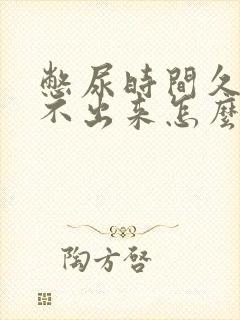 憋尿時間久
不出来怎麼
陶方啓